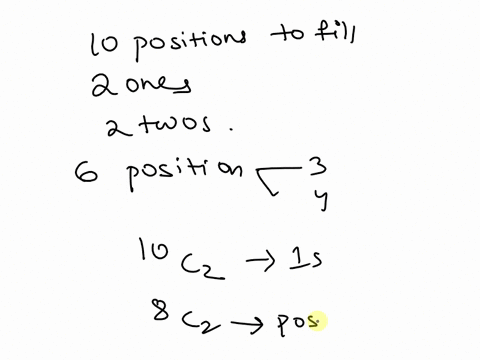 10 positions to fill
2 ones
2 twos.
6 position 3
y
10 C2 → 1s
8 C2 → pos